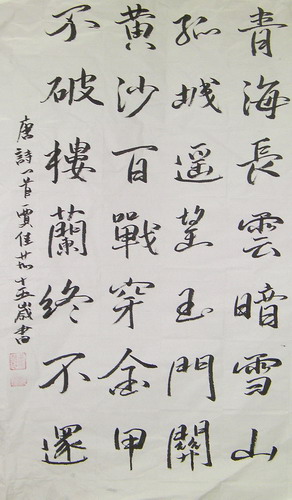 青海長雲暗雪山
孤城遥望玉門關
黄沙百戰穿金甲
不破樓蘭終不還
唐詩一首賈佳茹十五歲書